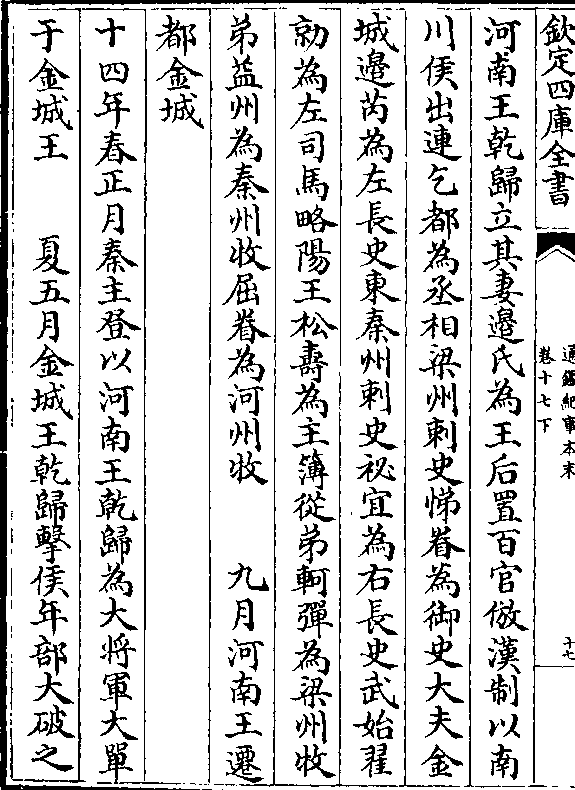 欽定四庫全書
通鑑紀事本末
卷十七下
十七
河南王乾歸立其妻邉氏為王后置百官倣漢制以南
川侯出連乞都為丞相梁州刺史悌眷為御史大夫金
城邉芮為左長史東秦州刺史祕宜為右長史武始翟
勍為左司馬略陽王松壽為主簿從弟軻彈為梁州牧
弟益州為秦州牧屈眷為河州牧　　九月河南王遷
都金城
十四年春正月秦主登以河南王乾歸為大將軍大單
于金城王　　夏五月金城王乾歸擊侯年部大破之